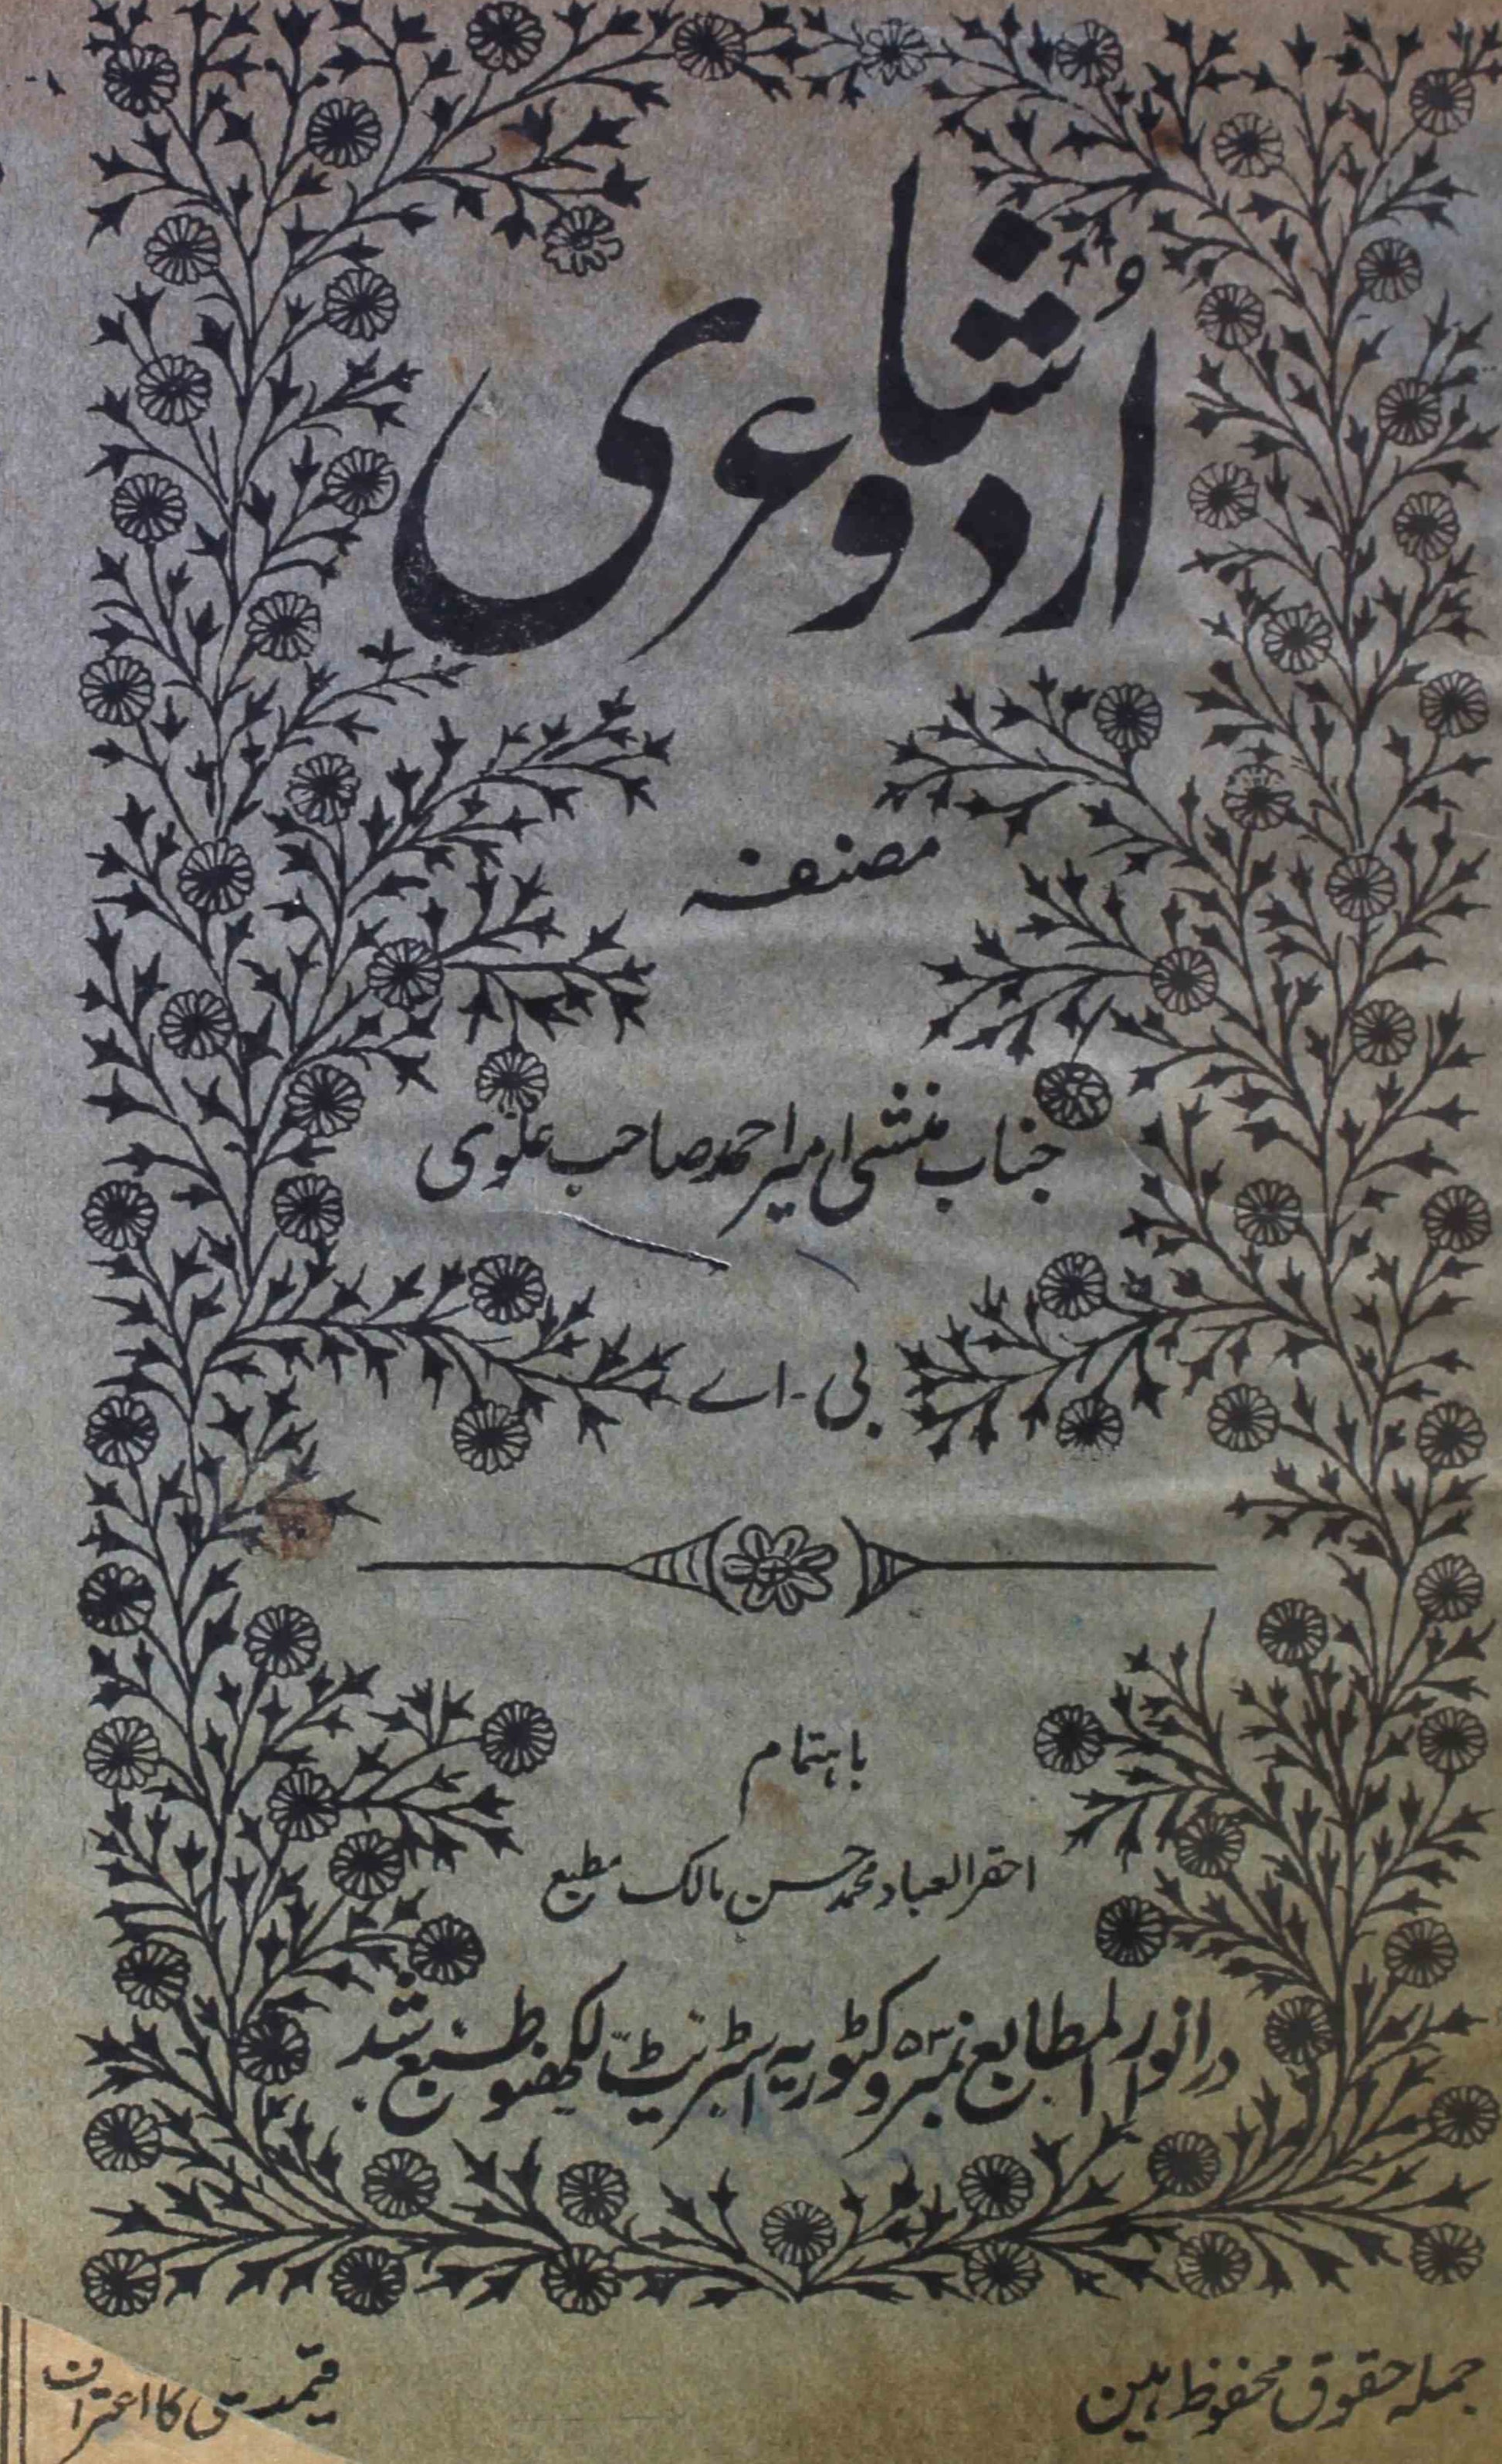 اُردو شاعری
مصنفہ
جناب منشی امیر احمد صاحب علوی
بی - اے
باہتمام
احقر العباد محمد حسن مالک مطبع
در انوار المطابع نمبر ۵۳ وکٹوریہ اسٹریٹ لکھنؤ طبع شد
جملہ حقوق محفوظ ہین
کا اعتراف